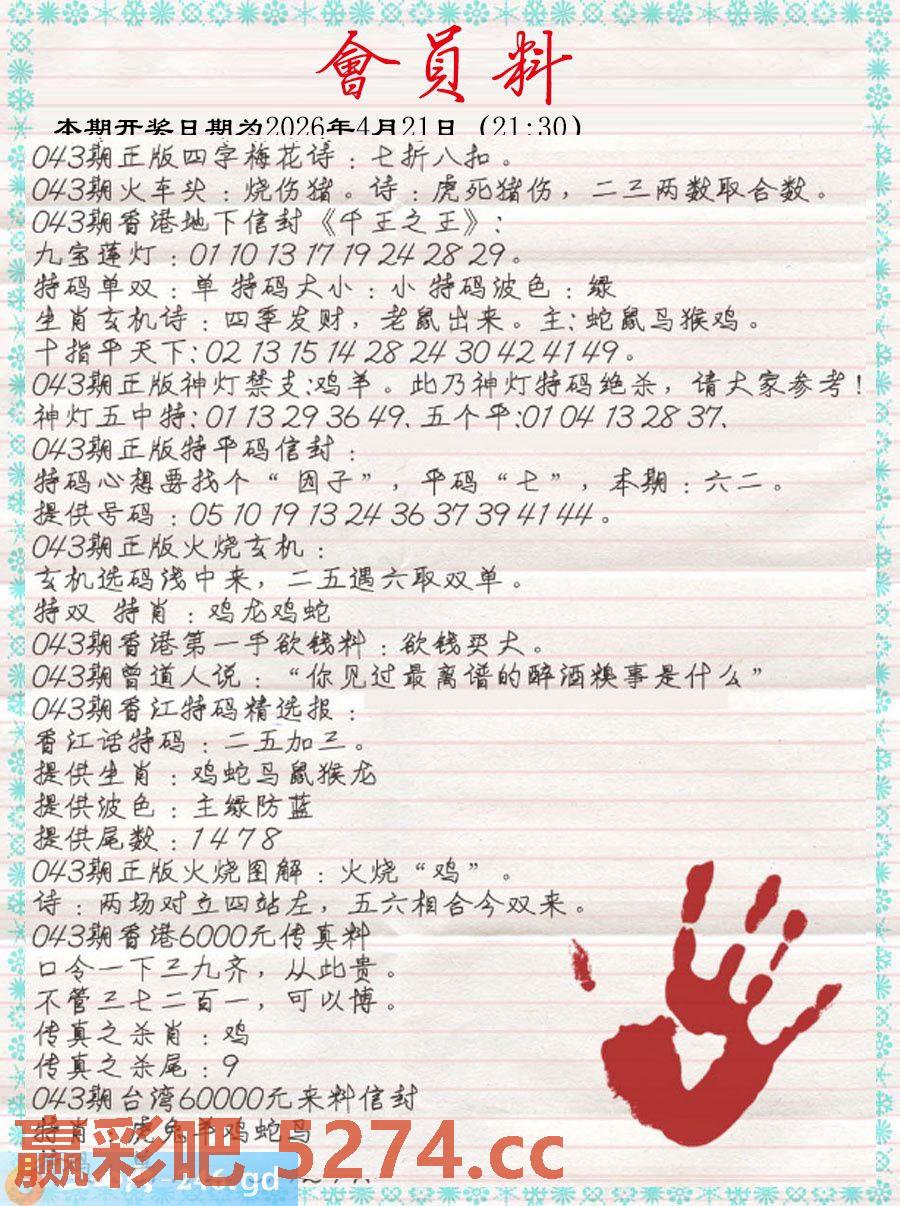 會員料
本期开奖日期为2026年4月21日（21:30）
043期正版四字梅花诗：七折八扣。
043期火车头：烧伤猪。诗：虎死猪伤，二三两数取合数。
043期香港地下信封《千王之王》：
九宝莲灯：01 10 13 17 19 24 28 29。
特码单双：单 特码大小：小 特码波色：绿
生肖玄机诗：四季发财，老鼠出来。主：蛇鼠马猴鸡。
十指平天下：02 13 15 14 28 24 30 42 41 49。
043期正版神灯禁支：鸡羊。此乃神灯特码绝杀，请大家参考！
神灯五中特：01 13 29 36 49、五个平：01 04 13 28 37、
043期正版特平码信封：
特码心想要找个“因子”，平码“七”，本期：六二。
提供号码：05 10 19 13 24 36 37 39 41 44。
043期正版火烧玄机：
玄机选码浅中来，二五遇六取双单。
特双 特肖：鸡龙鸡蛇
043期香港第一手欲钱料：欲钱买大。
043期曾道人说：“你见过最离谱的醉酒糗事是什么”
043期香江特码精选报：
香江话特码：二五加三。
提供生肖：鸡蛇马鼠猴龙
提供波色：主绿防蓝
提供尾数：1 4 7 8
043期正版火烧图解：火烧“鸡”。
诗：两场对立四站左，五六相合今双来。
043期香港6000元传真料
口令一下三九齐，从此贵。
不管三七二百一，可以博。
传真之杀肖：鸡
传真之杀尾：9
043期台湾60000元来料信封
特肖：虎兔羊鸡蛇马
赢彩吧 5274.cc